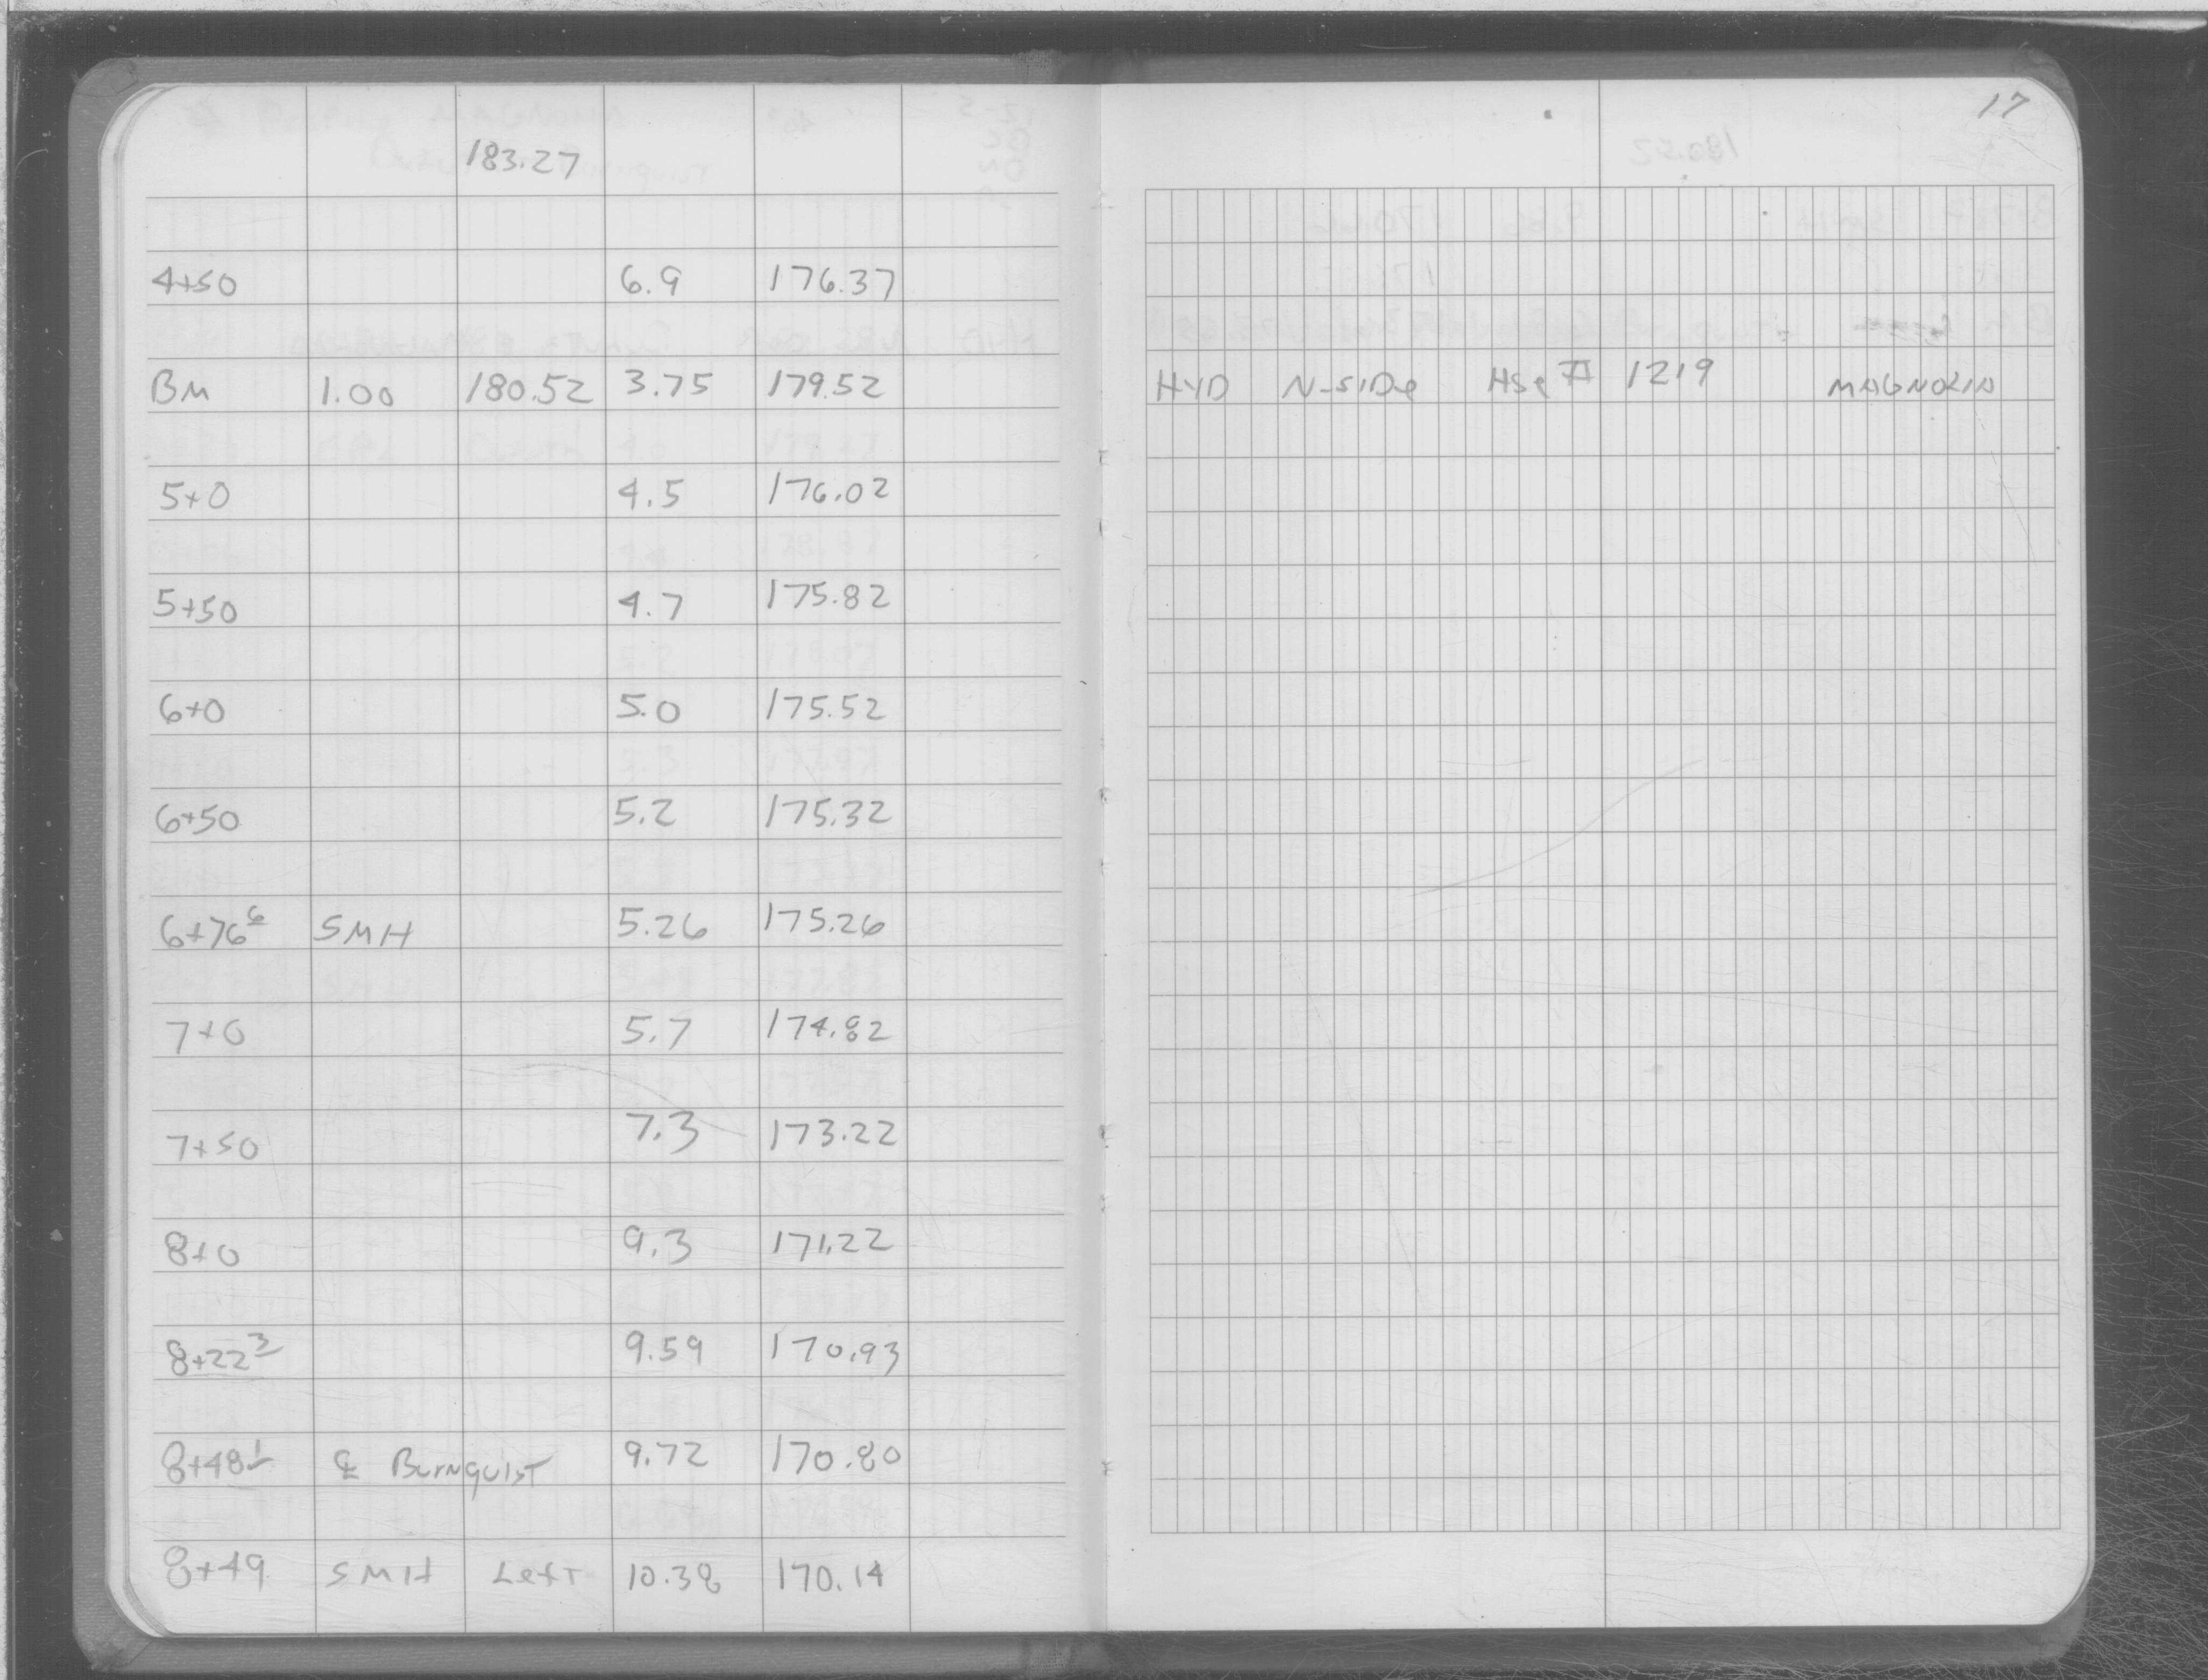 17
183.27
4+50 6.9 176.37
BM 1.00 180.52 3.75 179.52 HYD N-SIDe HSe # 1219 MAGNOLIA
5+0 4.5 176.02
5+50 4.7 175.82
6+0 5.0 175.52
6+50 5.2 175.32
6+76⁶ SMH 5.26 175.26
7+0 5.7 174.82
7+50 7.3 173.22
8+0 9.3 171.22
8+22³ 9.59 170.93
8+48¹ ℄ Burnquist 9.72 170.80
8+49 SMH Left 10.38 170.14